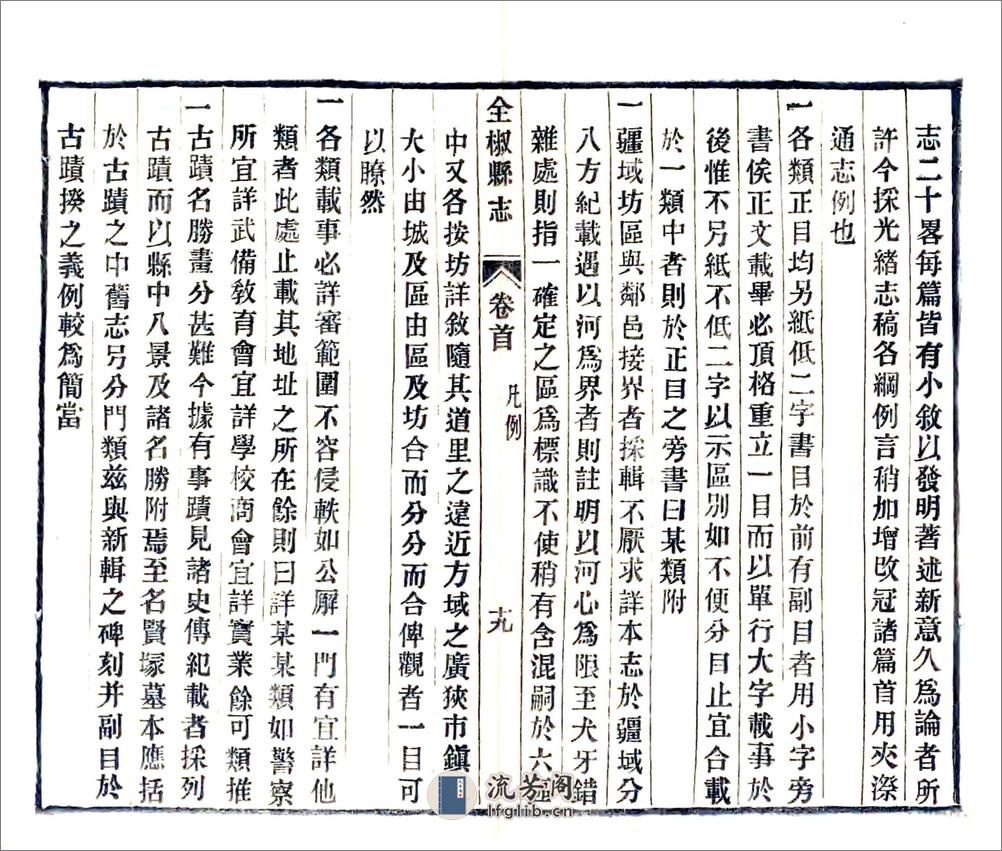 志二十畧每篇皆有小敘以發明著述新意久爲論者所
許今採光緒志稿各綱例言稍加增改冠諸篇首用夾漈
通志例也
一各類正目均另紙低二字書目於前有副目者用小字旁
書俟正文載畢必頂格重立一目而以單行大字載事於
後惟不另紙不低二字以示區別如不便分目止宜合載
於一類中者則於正目之旁書曰某類附
一疆域坊區與鄰邑接界者採輯不厭求詳本志於疆域分
八方紀載遇以河爲界者則註明以河心爲限至犬牙錯
雜處則指一確定之區爲標識不使稍有含混嗣於六區
全椒縣志
卷首
凡例
十九
中又各按坊詳敘隨其道里之遠近方域之廣狹市鎮
大小由城及區由區及坊合而分分而合俾觀者一目可
以瞭然
一各類載事必詳審範圍不容侵軼如公廨一門有宜詳他
類者此處止載其地址之所在餘則曰詳某某類如警察
所宜詳武備敎育會宜詳學校商會宜詳實業餘可類推
一古蹟名勝畫分甚難今據有事蹟見諸史傳紀載者採列
古蹟而以縣中八景及諸名勝附焉至名賢塚墓本應括
於古蹟之中舊志另分門類茲與新輯之碑刻并副目於
古蹟揆之義例較爲簡當
流芳阁
lfglib.cn